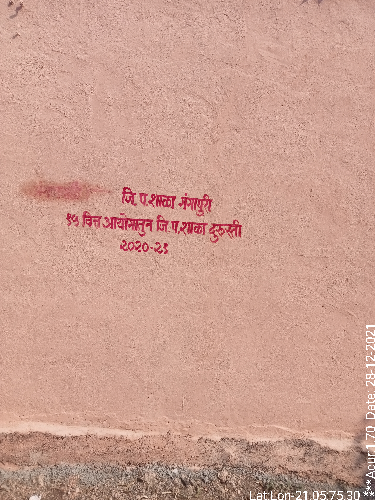 जि. प. शाळा गंगापुरी
१५ वित्त आयोगातुन जि.प.शाळा दुरुस्ती
2020-21
Lat Lon-21.0575,30 **
***Acur:1.70 Date: 28-12-2021